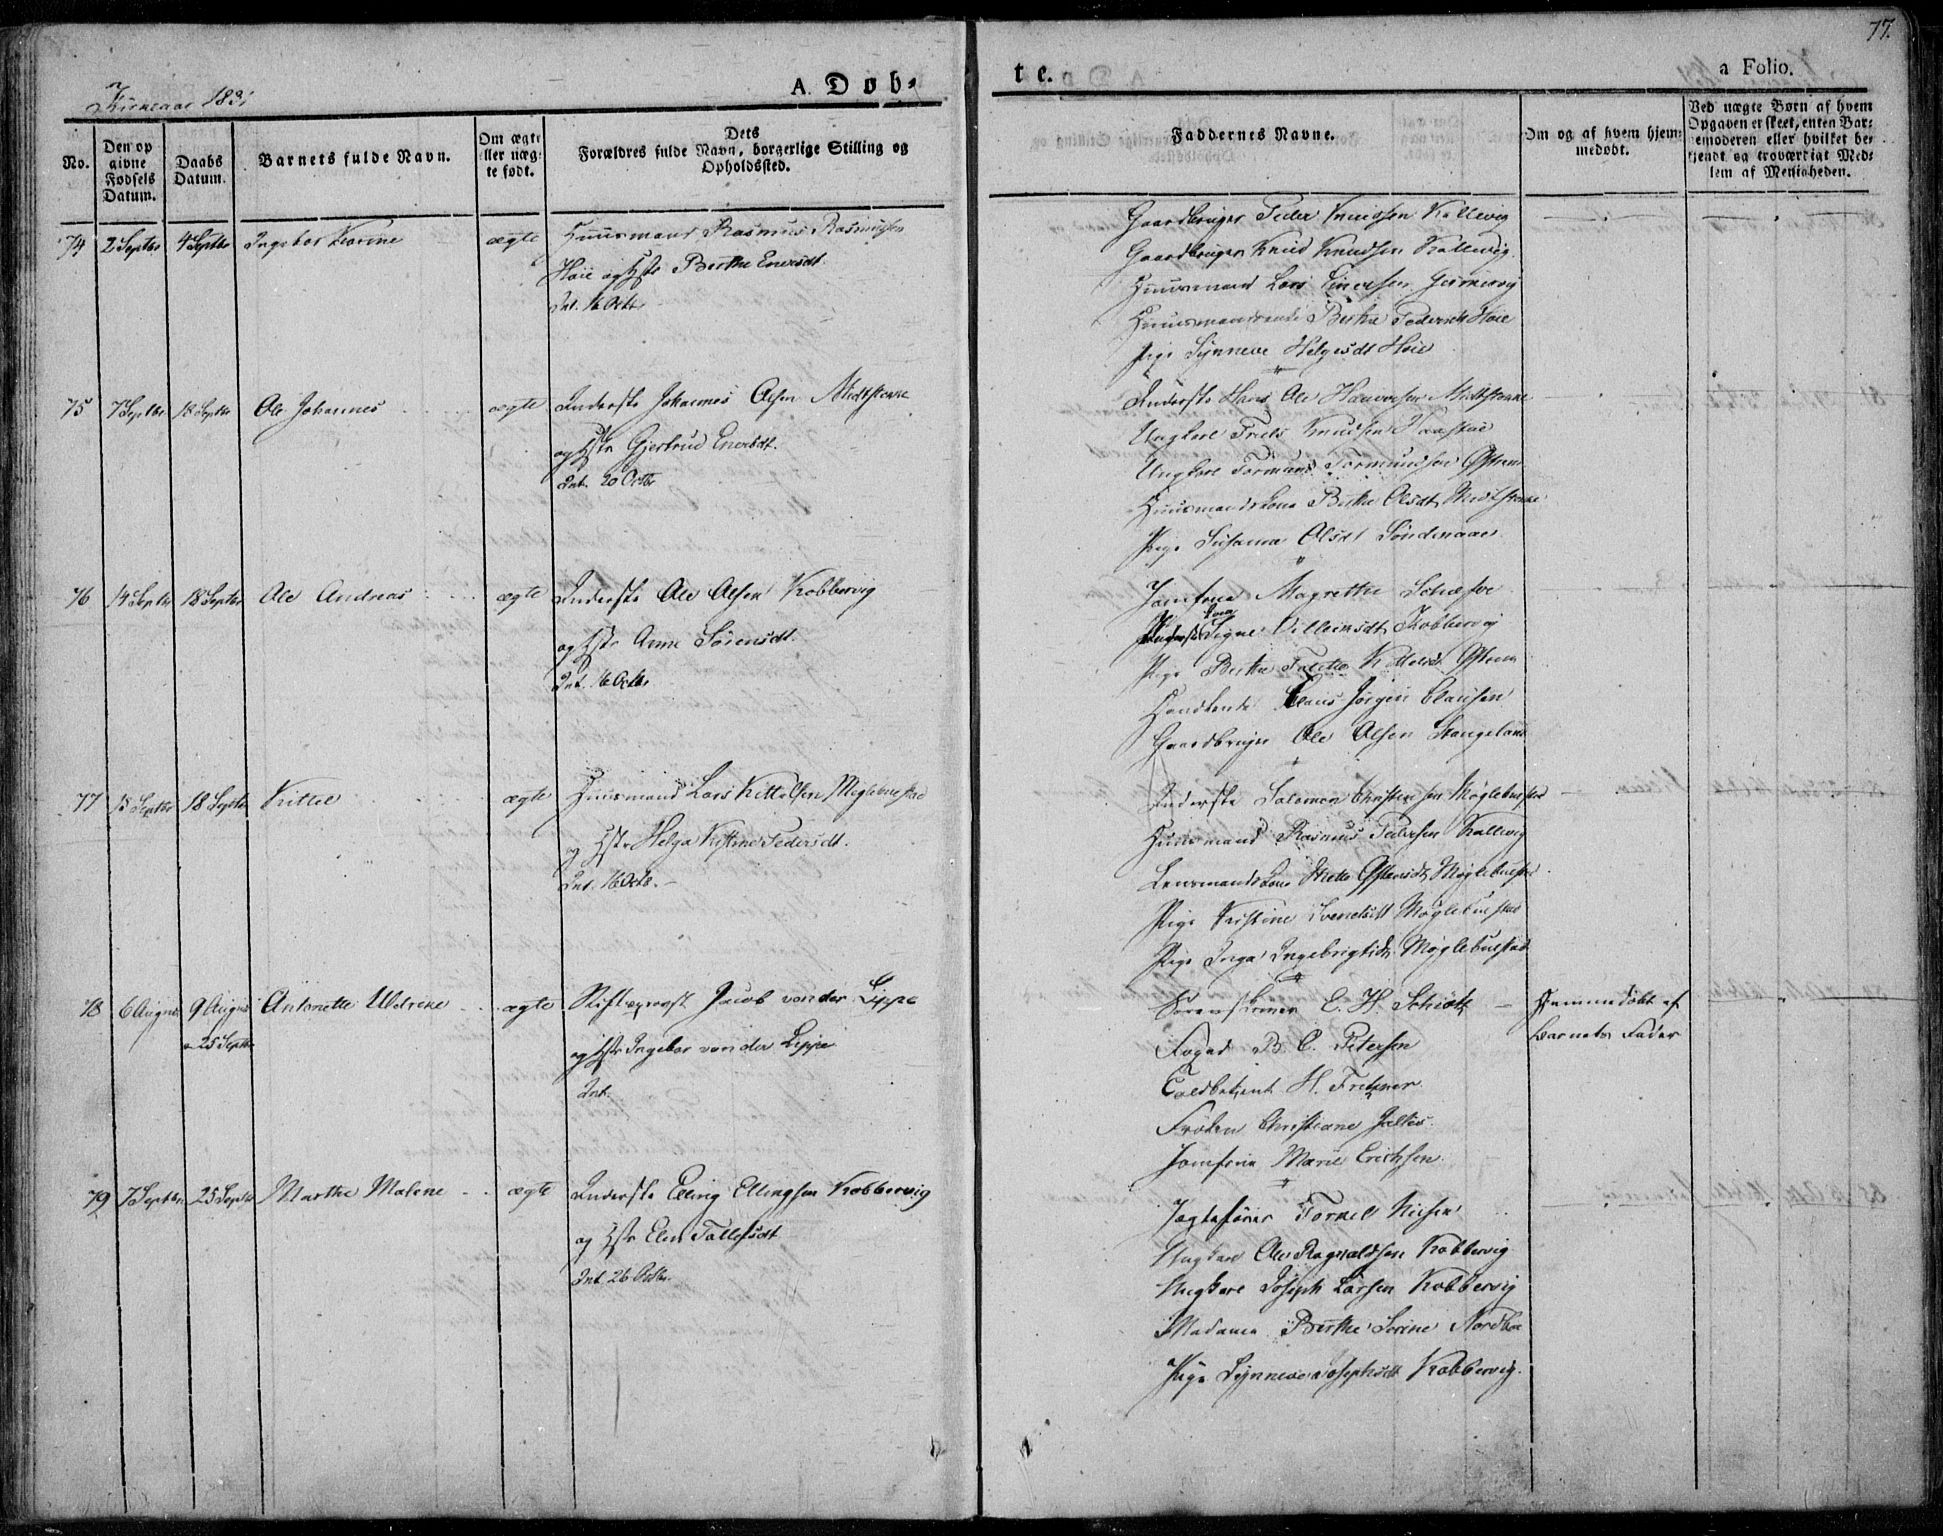 77.
Kirkeaar 1831
A. Døb-
te.
a Folio.
No.
Den op
givne
Fødsels
Datum.
Daabs
Datum.
Barnets fulde Navn.
Om ægte
eller uæg-
te født.
Dets
Forældres fulde Navn, borgerlige Stilling og
Opholdssted.
Faddernes Navne.
Om og af hvem hjem-
medøbt.
Ved uægte Børn af hvem
Opgaven er skeet, enten Bar-
nemoderen eller hvilket be-
kjendt og troværdigt Med-
lem af Menigheden.
74 2 Septbr 4 Septbr Ingebor Karine ægte Huusmand Rasmus Rasmussen
Høie og Hstr Berthe Enersdt.
Int. 16 Octb.
Gaardbruger Peder Knudsen Kallevig
Gaardbruger Knud Knudsen Kallevig
Huusmand Lars
Huusmandsenke Berthe Pedersdt Høie
Pige Synneve Helgesdt Høie
75 7 Septbr 18 Septbr Ole Johannes ægte Inderste Johannes Olsen Midtstenne
og Hstr Gjertrud Enersdt.
Int. 20 Octbr
Inderste Hans Ole Midtstenne
Ungkarl Knudsen
Ungkarl Tormund Tormundsen
Huusmandskone Berthe Olsdt Midtstenne
Pige Susanna Olsdt
76 14 Septbr 18 Septbr Ole Andreas ægte Inderste Ole Olsen Kobbervig
og Hstr Anne Sørensdt.
Int. 16 Octbr
Jomfrue Magrethe
Kone
Signe Villumsdt Kobbervig
Pige Berthe
Claus Jørgen Clausen
Gaardbruger Ole Olsen Stangeland
77 15 Septbr 18 Septbr Kittel ægte Huusmand Lars Kittelsen Møglebustad
og Hstr Helga Kistine Pedersdt.
Int. 16 Octb.
Inderste Salomon Christensen Møglebustad
Huusmand Rasmus Pedersen Kallevig
Lensmandskone Mette Møglebustad
Pige Kristine Svendsdt Møglebustad
Pige Inga Ingebrigtsdt Møglebustad
78 6 August 9 August Antonette Uldrene ægte Stiftsprovst Jacob von der Lippe
25 Septbr
og Hstr Ingebor von der Lippe
Int.
Sorenskriver E. H. Schiøtz
Foged B. C. Petersen
H. Fritzner
Frøken Christiane
Jomfrue Marie Erichsen
Hjemmedøbt af
Barnets Fader
79 7 Septbr 25 Septbr Marthe Malene ægte Inderste Elling Ellingsen Kobbervig
og Hstr Elen Tollefsdt
Int. 26 Octbr.
Jagtefører Tormel Nielsen
Ungkarl Ole Ragnaldsen Kobbervig
Ungkarl Joseph Larsen Kobbervig
Madame Berthe Serine Nordboe
Pige Synneve Josephsdt Kobbervig.